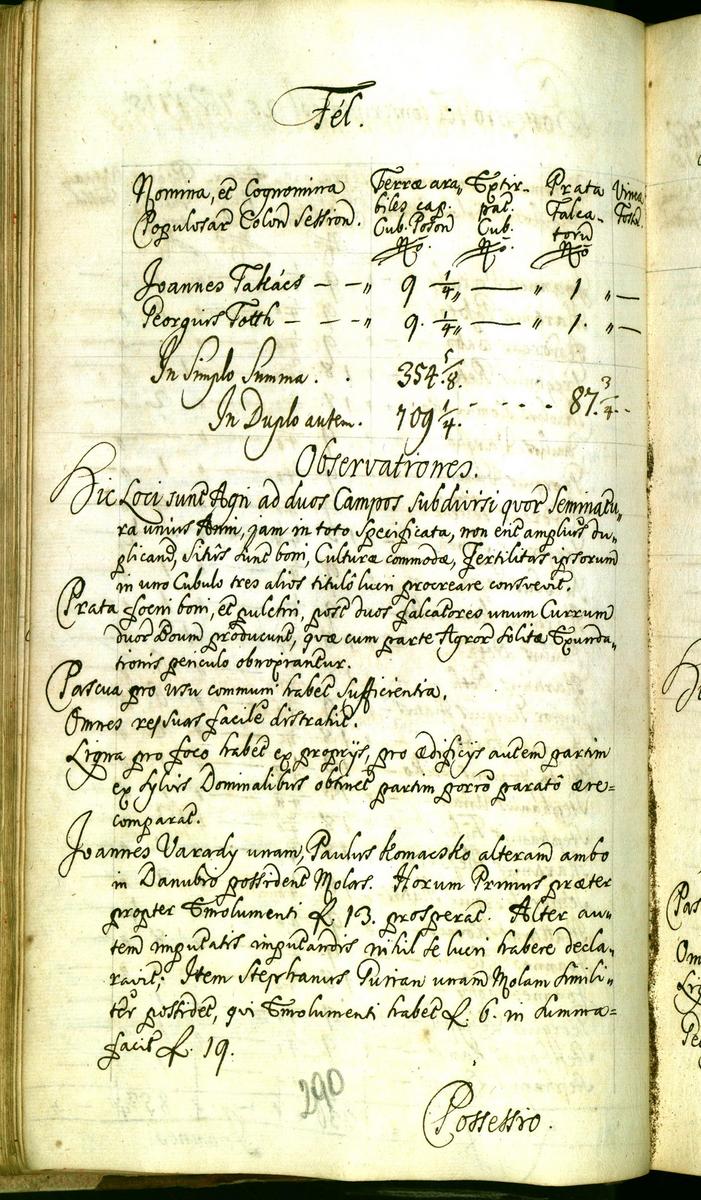 Fél.
Nomina, et Cognomina
Populosar Colon Session.
Terræ ara„
biles cap.
Cub. Poson
No.
Extir-
pat.
Cub.
No.
Prata
Falca-
toru
No.
Vinea
Joannes Takács — — „ 9 1/4 „ — „ 1 „ —
Georgius Totth — — „ 9. 1/4 „ — „ 1. „ —
In Simplo Summa. . 354. 5/8. 87. 3/4
In Duplo autem. 709 1/4.
Observationes.
Hic Loci sunt Agri ad duos Campos subdivisi quor Seminatu„
ra unius Anni, jam in toto specificata, non erit amplius du„
plicand, Sitûs sunt boni, Culturæ commodæ, Fertilitas ipsorum
in uno Cubulo tres alios titulô lucri procreare consvevit.
Prata foeni boni, et pulchri, post duos falcatores unum Currum
duor Boum producunt, quæ cum parte Agror solitæ Exunda„
tionis periculo obnoxiantur.
Pascua pro usu communi habet sufficientia.
Omnes res suas facile distrahit.
Ligna pro foco habet ex proprijs, pro ædificijs autem partim
ex sylvis Dominalibus obtinet partim porro paratô ære=
comparat.
Joannes Varady unam, Paulus Komacsko alteram ambo
in Danubio possident Molas. Horum Primus præter
propter Emolumenti f. 13. prosperat. Alter au„
tem imputatis imputandis nihil se lucri habere decla„
ravit; Item Stephanus Purian unam Molam simili„
ter possidet, qui Emolumenti habet f. 6. in summa=
facit f. 19.
290
Possessio.